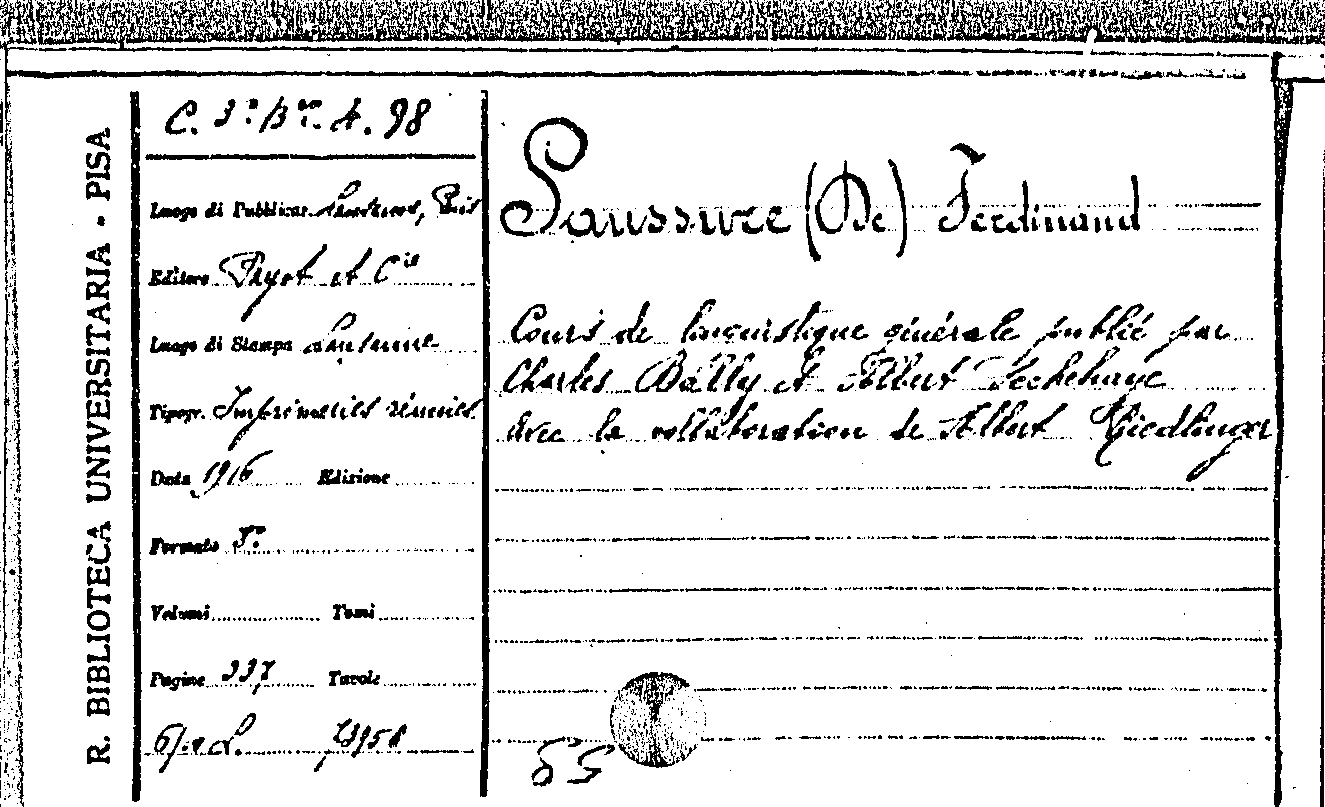 R. BIBLIOTECA UNIVERSITARIA - PISA
C. 3º. A. 98
Luogo di Pubblicaz. Lausanne, Paris
Editore Payot et Cie
Luogo di Stampa Lausanne
Tipogr. Imprimeries réunies
Data 1916 Edizione
Formato 8º
Volumi Tomi
Pagine 337 Tavole
Saussure (De) Ferdinand
Cours de linguistique générale publié par
Charles Bally et Albert Sechehaye
avec la collaboration de Albert Riedlinger